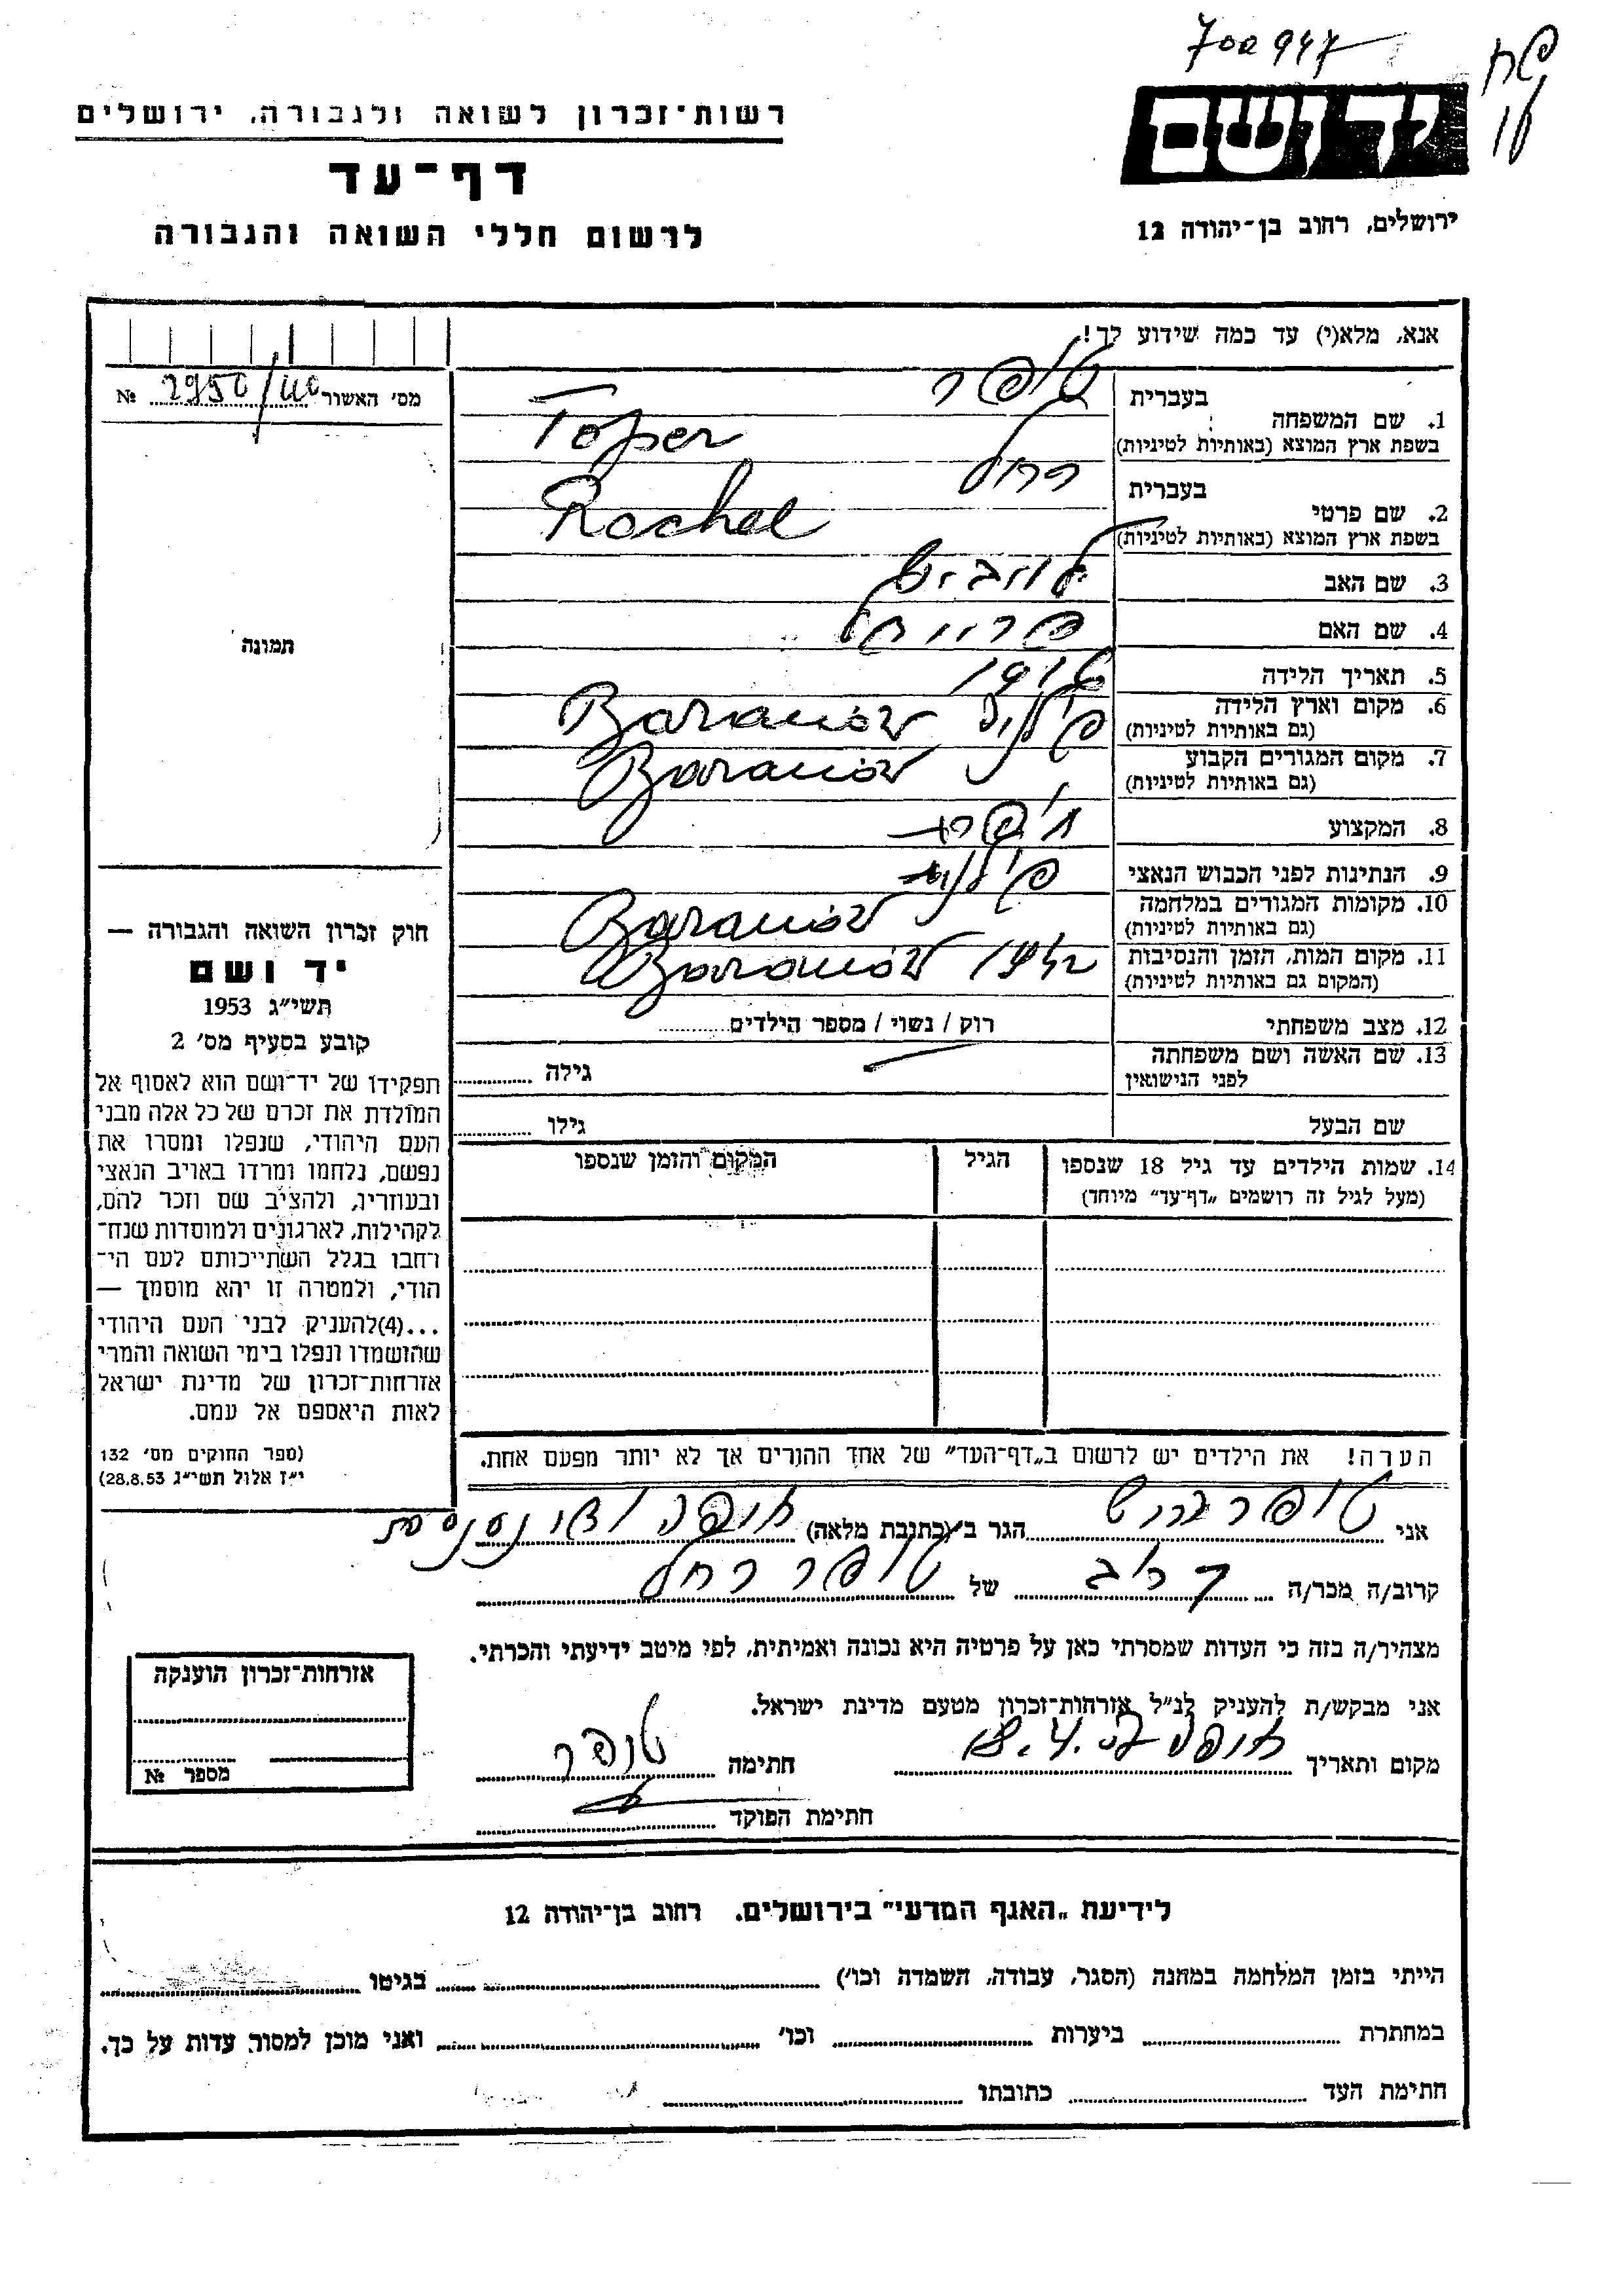 700947
יד ושם
רשות־זכרון לשואה ולגבורה, ירושלים
דף־עד
לרשום חללי השואה והגבורה
ירושלים, רחוב בן־יהודה 12
אנא, מלא(י) עד כמה שידוע לך!
מס׳ האשור № 2950/
1. שם המשפחה
בעברית טופר
בשפת ארץ המוצא (באותיות לטיניות) Toper
2. שם פרטי
בעברית רחל
בשפת ארץ המוצא (באותיות לטיניות) Rachel
3. שם האב
4. שם האם
5. תאריך הלידה
6. מקום וארץ הלידה
(גם באותיות לטיניות) פולין Baranów
7. מקום המגורים הקבוע
(גם באותיות לטיניות) Baranów
8. המקצוע תופרת
9. הנתינות לפני הכבוש הנאצי
10. מקומות המגורים במלחמה
(גם באותיות לטיניות) Baranów
11. מקום המות, הזמן והנסיבות
(המקום גם באותיות לטיניות) Baranów
12. מצב משפחתי רוק / נשוי / מספר הילדים
13. שם האשה ושם משפחתה
לפני הנישואין גילה
שם הבעל גילו
14. שמות הילדים עד גיל 18 שנספו הגיל המקום והזמן שנספו
(מעל לגיל זה רושמים „דף־עד״ מיוחד)
הערה! את הילדים יש לרשום ב„דף־העד״ של אחד ההורים אך לא יותר מפעם אחת.
תמונה
חוק זכרון השואה והגבורה —
יד ושם
תשי״ג 1953
קובע בסעיף מס׳ 2
תפקידו של יד־ושם הוא לאסוף אל
המולדת את זכרם של כל אלה מבני
העם היהודי, שנפלו ומסרו את
נפשם, נלחמו ומרדו באויב הנאצי
ובעוזריו, ולהציב שם וזכר להם,
לקהילות, לארגונים ולמוסדות שנח־
רחבו בגלל השתייכותם לעם הי־
הודי, ולמטרה זו יהא מוסמך —
...(4)להעניק לבני העם היהודי
שהושמדו ונפלו בימי השואה והמרי
אזרחות־זכרון של מדינת ישראל
לאות היאספם אל עמם.
(ספר החוקים מס׳ 132
י״ז אלול תשי״ג 28.8.53)
אני טופר ברוש הגר ב־(כתובת מלאה) חופה
קרוב/ה מכר/ה קרוב של טופר רחל
מצהיר/ה בזה כי העדות שמסרתי כאן על פרטיה היא נכונה ואמיתית, לפי מיטב ידיעתי והכרתי.
אני מבקש/ת להעניק לנ״ל אזרחות־זכרון מטעם מדינת ישראל.
מקום ותאריך חתימה טופר
חתימת הפוקד
אזרחות־זכרון הוענקה
מספר №
לידיעת „האגף המדעי״ בירושלים. רחוב בן־יהודה 12
הייתי בזמן המלחמה במחנה (הסגר, עבודה, השמדה וכו׳) בגיטו
במחתרת ביערות וכו׳ ואני מוכן למסור עדות על כך.
חתימת העד כתובתו